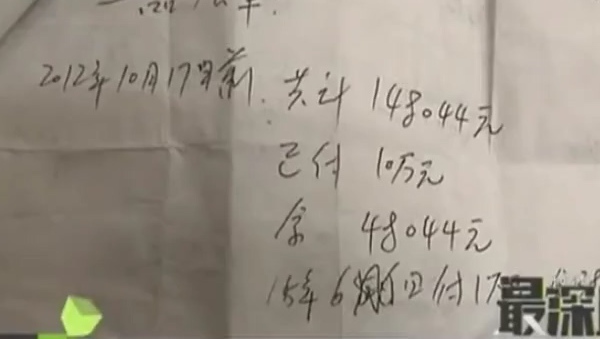 2012年10月17日前.共计 148044元
已付 10万元
余 48044元
15年6月 日付1万
最深